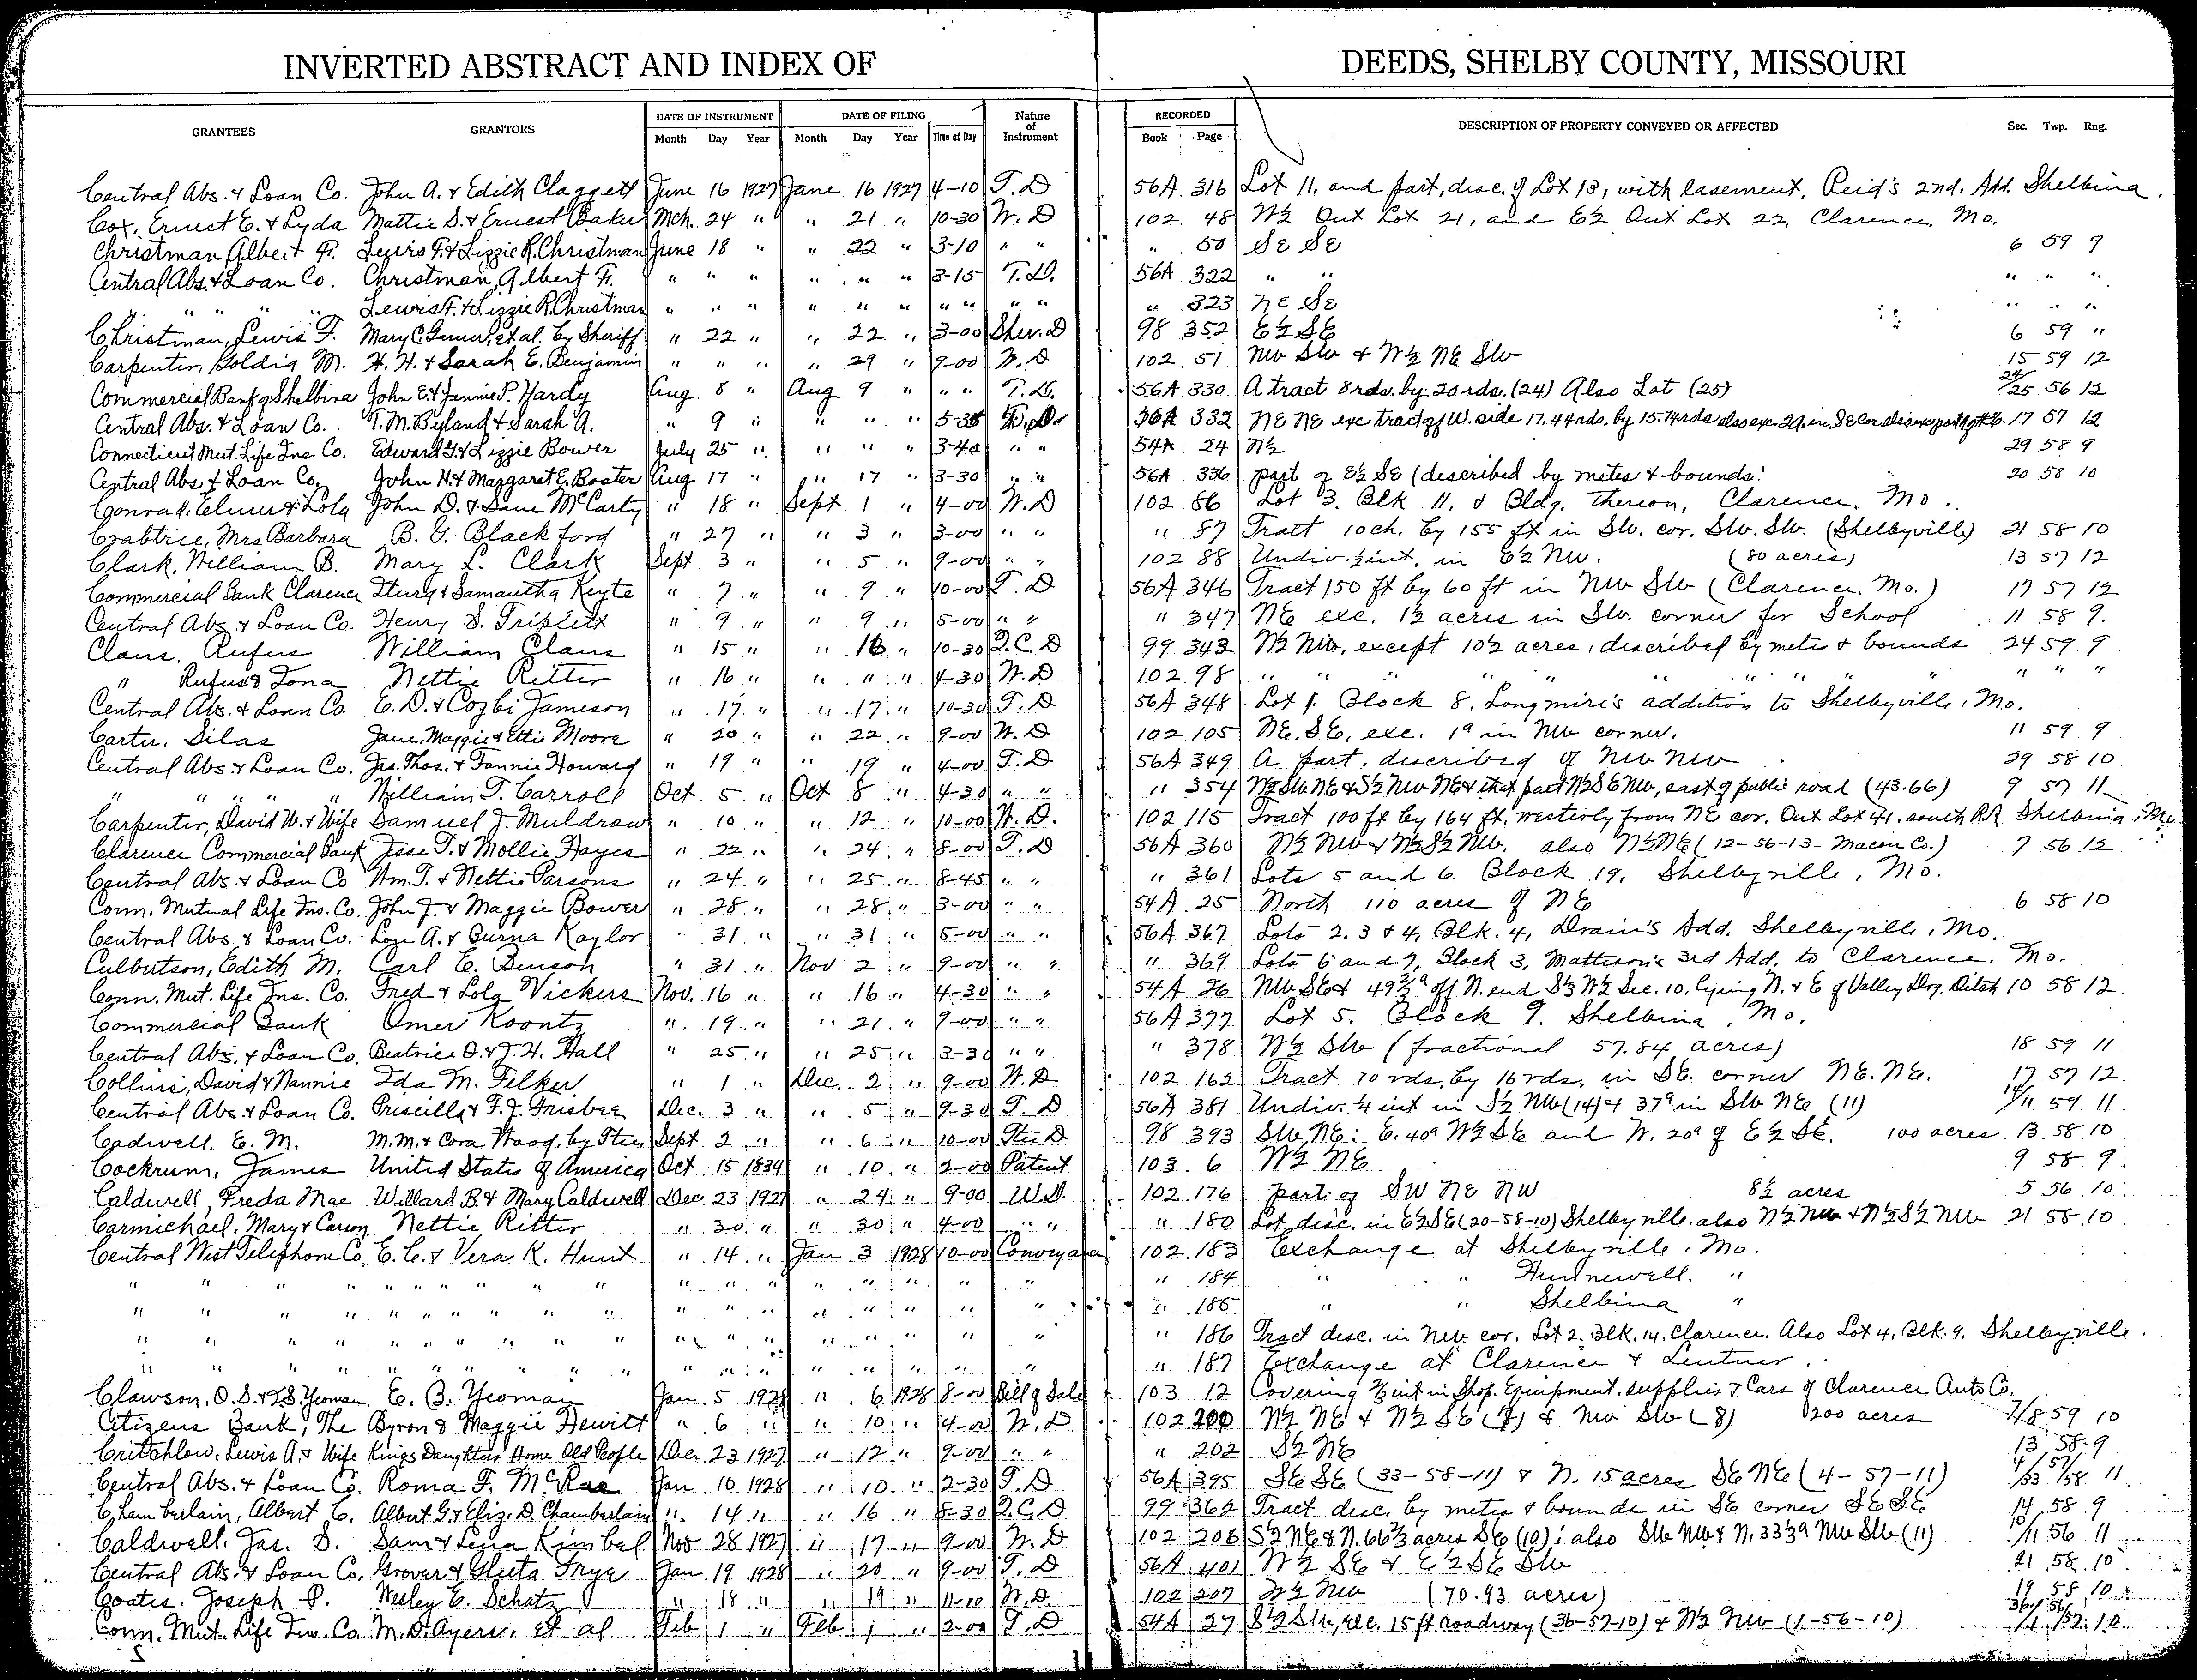 INVERTED ABSTRACT AND INDEX OF DEEDS, SHELBY COUNTY, MISSOURI
GRANTEES GRANTORS DATE OF INSTRUMENT DATE OF FILING Nature of Instrument RECORDED DESCRIPTION OF PROPERTY CONVEYED OR AFFECTED Sec. Twp. Rng.
Month Day Year Month Day Year Time of Day Book Page
Central Abs. & Loan Co. John A. & Edith Claggett June 16 1927 June 16 1927 4-10 T. D 56A 316 Lot 11, and part, desc. of Lot 13, with easement, Reid's 2nd. Add. Shelbina.
Cox, Ernest E. & Lyda Mattie S. & Ernest Baker Mch. 24 " " 21 " 10-30 W. D 102 48 W½ Out Lot 21, and E½ Out Lot 22, Clarence, Mo.
Christman Albert F. Lewis F. & Lizzie R. Christman June 18 " " 22 " 3-10 " " " 50 SE SE 6 59 9
Central Abs. & Loan Co. Christman, Albert F. " " " " " " 3-15 T. D. 56A 322 " " " " "
" " " " Lewis F. & Lizzie R. Christman " " " " " " " " " " " 323 NE SE " " "
Christman, Lewis F. Mary C. et al. by Sheriff " 22 " " 22 " 3-00 Sher. D 98 352 E½ SE 6 59 "
Carpenter, Goldia M. H. H. & Sarah E. Benjamin " " " " 29 " 9-00 W. D 102 51 NW SW & W½ NE SW 15 59 12
Commercial Bank of Shelbina John E. & Fannie P. Hardy Aug 8 " Aug 9 " " " T. D. 56A 330 A tract 8 rds. by 20 rds. (24) Also Lot (25) 24/25 56 12
Central Abs. & Loan Co. T. M. Byland & Sarah A. " 9 " " " " 5-30 T. D. 56A 332 NE NE exc tract off W. side 17.44 rds. by 15.74 rds also exc. 2a. in SE cor 17 57 12
Connecticut Mut. Life Ins Co. Edward G. & Lizzie Bower July 25 " " " " 3-40 " " 54A 24 N½ 29 58 9
Central Abs & Loan Co. John H. & Margaret E. Baster Aug 17 " " 17 " 3-30 " " 56A 336 part of E½ SE (described by metes & bounds. 20 58 10
Conrad, Elmer & Lola John D. & Dane McCarty " 18 " Sept 1 " 4-00 W. D 102 86 Lot 3, Blk 11, & Bldg. thereon, Clarence, Mo.
Crabtree, Mrs Barbara B. G. Blackford " 27 " " 3 " 3-00 " " " 87 Tract 10 ch. by 155 ft in SW. cor. SW. SW. (Shelbyville) 21 58 10
Clark, William B. Mary L. Clark Sept 3 " " 5 " 9-00 " " 102 88 Undiv. ½ int. in E½ NW. (80 acres) 13 57 12
Commercial Bank Clarence & Samantha Keyte " 7 " " 9 " 10-00 T. D 56A 346 Tract 150 ft by 60 ft in NW SW (Clarence, Mo.) 17 57 12
Central Abs. & Loan Co. Henry S. Triplett " 9 " " 9 " 5-00 " " " 347 NE exc. 1½ acres in SW. corner for School 11 58 9.
Claus, Rufus William Claus " 15 " " 16 " 10-30 Q. C. D 99 343 W½ NW, except 10½ acres, described by metes & bounds 24 59 9
" Rufus & Iona Nettie Ritter " 16 " " " " 4-30 W. D 102 98 " " " " " " " " " "
Central Abs. & Loan Co. E. D. & Cozbi Jameson " 17 " " 17 " 10-30 T. D 56A 348 Lot 1. Block 8, Longmire's addition to Shelbyville, Mo.
Carter, Silas Jane, Maggie & Ettie Moore " 20 " " 22 " 9-00 W. D 102 105 NE. SE, exc. 1a in NW corner. 11 59 9
Central Abs. & Loan Co. Jas. Thos. & Fannie Howard " 19 " " 19 " 4-00 T. D 56A 349 A part, described of NW NW 29 58 10
" " " " William T. Carroll Oct 5 " Oct 8 " 4-30 " " " 354 W½ SW NE & S½ NW NE & that part N½ SE NW, east of public road (43.66) 9 57 11
Carpenter, David W. & Wife Samuel J. Muldrow " 10 " " 12 " 10-00 W. D. 102 115 Tract 100 ft by 164 ft. westerly from NE cor. Out Lot 41, south RR Shelbina, Mo
Clarence Commercial Bank Jesse T. & Mollie Hayes " 22 " " 24 " 8-00 T. D 56A 360 N½ NW & N½ S½ NW. also N½ NE (12-56-13- Macon Co.) 7 56 12
Central Abs. & Loan Co Wm. T. & Nettie Parsons " 24 " " 25 " 8-45 " " " 361 Lots 5 and 6. Block 19, Shelbyville, Mo.
Conn. Mutual Life Ins. Co. John J. & Maggie Bower " 28 " " 28 " 3-00 " " 54A 25 North 110 acres of NE 6 58 10
Central Abs & Loan Co. Lou A. & Burna Kaylor 31 " " 31 " 5-00 " " 56A 367 Lots 2. 3 & 4, Blk. 4, Drain's Add. Shelbyville, Mo.
Culbertson, Edith M. Carl E. Benson " 31 " Nov 2 " 9-00 " " " 369 Lots 6 and 7, Block 3, Mattison's 3rd Add, to Clarence, Mo.
Conn. Mut. Life Ins. Co. Fred & Lola Vickers Nov. 16 " " 16 " 4-30 " " 54 A 26 NW SE & 49⅔a off N. end S½ W½ Sec. 10, lying N. & E of Valley Drg. Ditch 10 58 12
Commercial Bank Omer Koontz " 19 " " 21 " 9-00 " " 56A 377 Lot 5. Block 9. Shelbina, Mo.
Central Abs. & Loan Co. Beatrice O. & J. H. Hall " 25 " " 25 " 3-30 " " " 378 W½ SW (fractional 57.84 acres) 18 59 11
Collins, David & Nannie Ida M. Felker " 1 " Dec. 2 " 9-00 W. D 102 162 Tract 10 rds, by 16 rds, in SE. corner NE. NE. 17 57 12
Central Abs. & Loan Co. Priscilla & F. J. Frisbee Dec. 3 " " 5 " 9-30 T. D 56A 381 Undiv. ¼ int in S½ NW (14) & 37a in SW NE (11) 14/11 59 11
Cadwell. E. M. M. M. & Cora Wood, by Stee, Sept 2 " " 6 " 10-00 Stee D. 98 393 SW NE: E. 40a W½ SE and W. 20a of E½ SE. 100 acres 13 58 10
Cockrum, James United States of America Oct 15 1834 " 10 " 2-00 Patent 103 6 W½ NE 9 58 9
Caldwell, Freda Mae Willard B. & Mary Caldwell Dec. 23 1927 " 24 " 9-00 W.D. 102 176 part of SW NE NW 8½ acres 5 56 10
Carmichael, Mary & Carson Nettie Ritter " 30 " " 30 " 4-00 " " " 180 Lot desc. in E½ SE (20-58-10) Shelbyville, also N½ NW & N½ S½ NW 21 58 10
Central West Telephone Co. E. C. & Vera K. Hunt " 14 " Jan 3 1928 10-00 Conveyance 102 183 Exchange at Shelbyville, Mo.
" " " " " " " " " " " " " " " " " " " 184 " " Hunnewell. "
" " " " " " " " " " " " " " " " " " " 185 " " Shelbina "
" " " " " " " " " " " " " " " " " " " 186 Tract desc. in NW. cor. Lot 2. Blk. 14. Clarence. Also Lot 4, Blk. 9. Shelbyville.
" " " " " " " " " " " " " " " " " " " 187 Exchange at Clarence & Lentner.
Clawson, O. S. & T. S. Yeoman E. B. Yeoman Jan 5 1928 " 6 1928 8-00 Bill of Sale 103 12 Covering ⅔ int in Shop. Equipment, supplies & Cars of Clarence Auto Co.
Citizens Bank, The Byron & Maggie Hewitt " 6 " " 10 " 4-00 W. D 102 200 W½ NE & W½ SE (7) & NW SW (8) 200 acres 7/8 59 10
Critchlow, Lewis A. & Wife Kings Daughters Home Old People Dec. 23 1927 " 12 " 9-00 " " " 202 S½ NE 13 58 9
Central Abs. & Loan Co. Roma F. McRae Jan. 10 1928 " 10 " 2-30 T. D 56A 395 SE SE (33-58-11) & N. 15 acres SE NE (4-57-11) 4/33 57/58 11
Chamberlain, Albert E. Albert G. & Eliz. D. Chamberlain " 14 " " 16 " 8-30 Q. C. D 99 362 Tract desc. by metes & bounds in SE corner SE SE 14 58 9
Caldwell, Jas. S. Sam & Lena Kimbel Nov 28 1927 " 17 " 9-00 W. D 102 206 S½ NE & N. 66⅔ acres SE (10); also SW NW & N. 33⅓a NW SW (11) 10/11 56 11
Central Abs. & Loan Co. Grover & Gleeta Frye Jan 19 1928 " 20 " 9-00 T. D 56A 401 W½ SE & E½ SE SW 21 58 10
Coates, Joseph P. Wesley E. Schatz " 18 " " 19 " 11-10 W. D 102 207 W½ NW (70.93 acres) 19 58 10
Conn. Mut. Life Ins. Co. M. D. Ayers, et al Feb 1 " Feb 1 " 2-00 T. D 54A 27 S½ SW, exc. 15 ft roadway (36-57-10) & W½ NW (1-56-10) 36/1 56/57 10